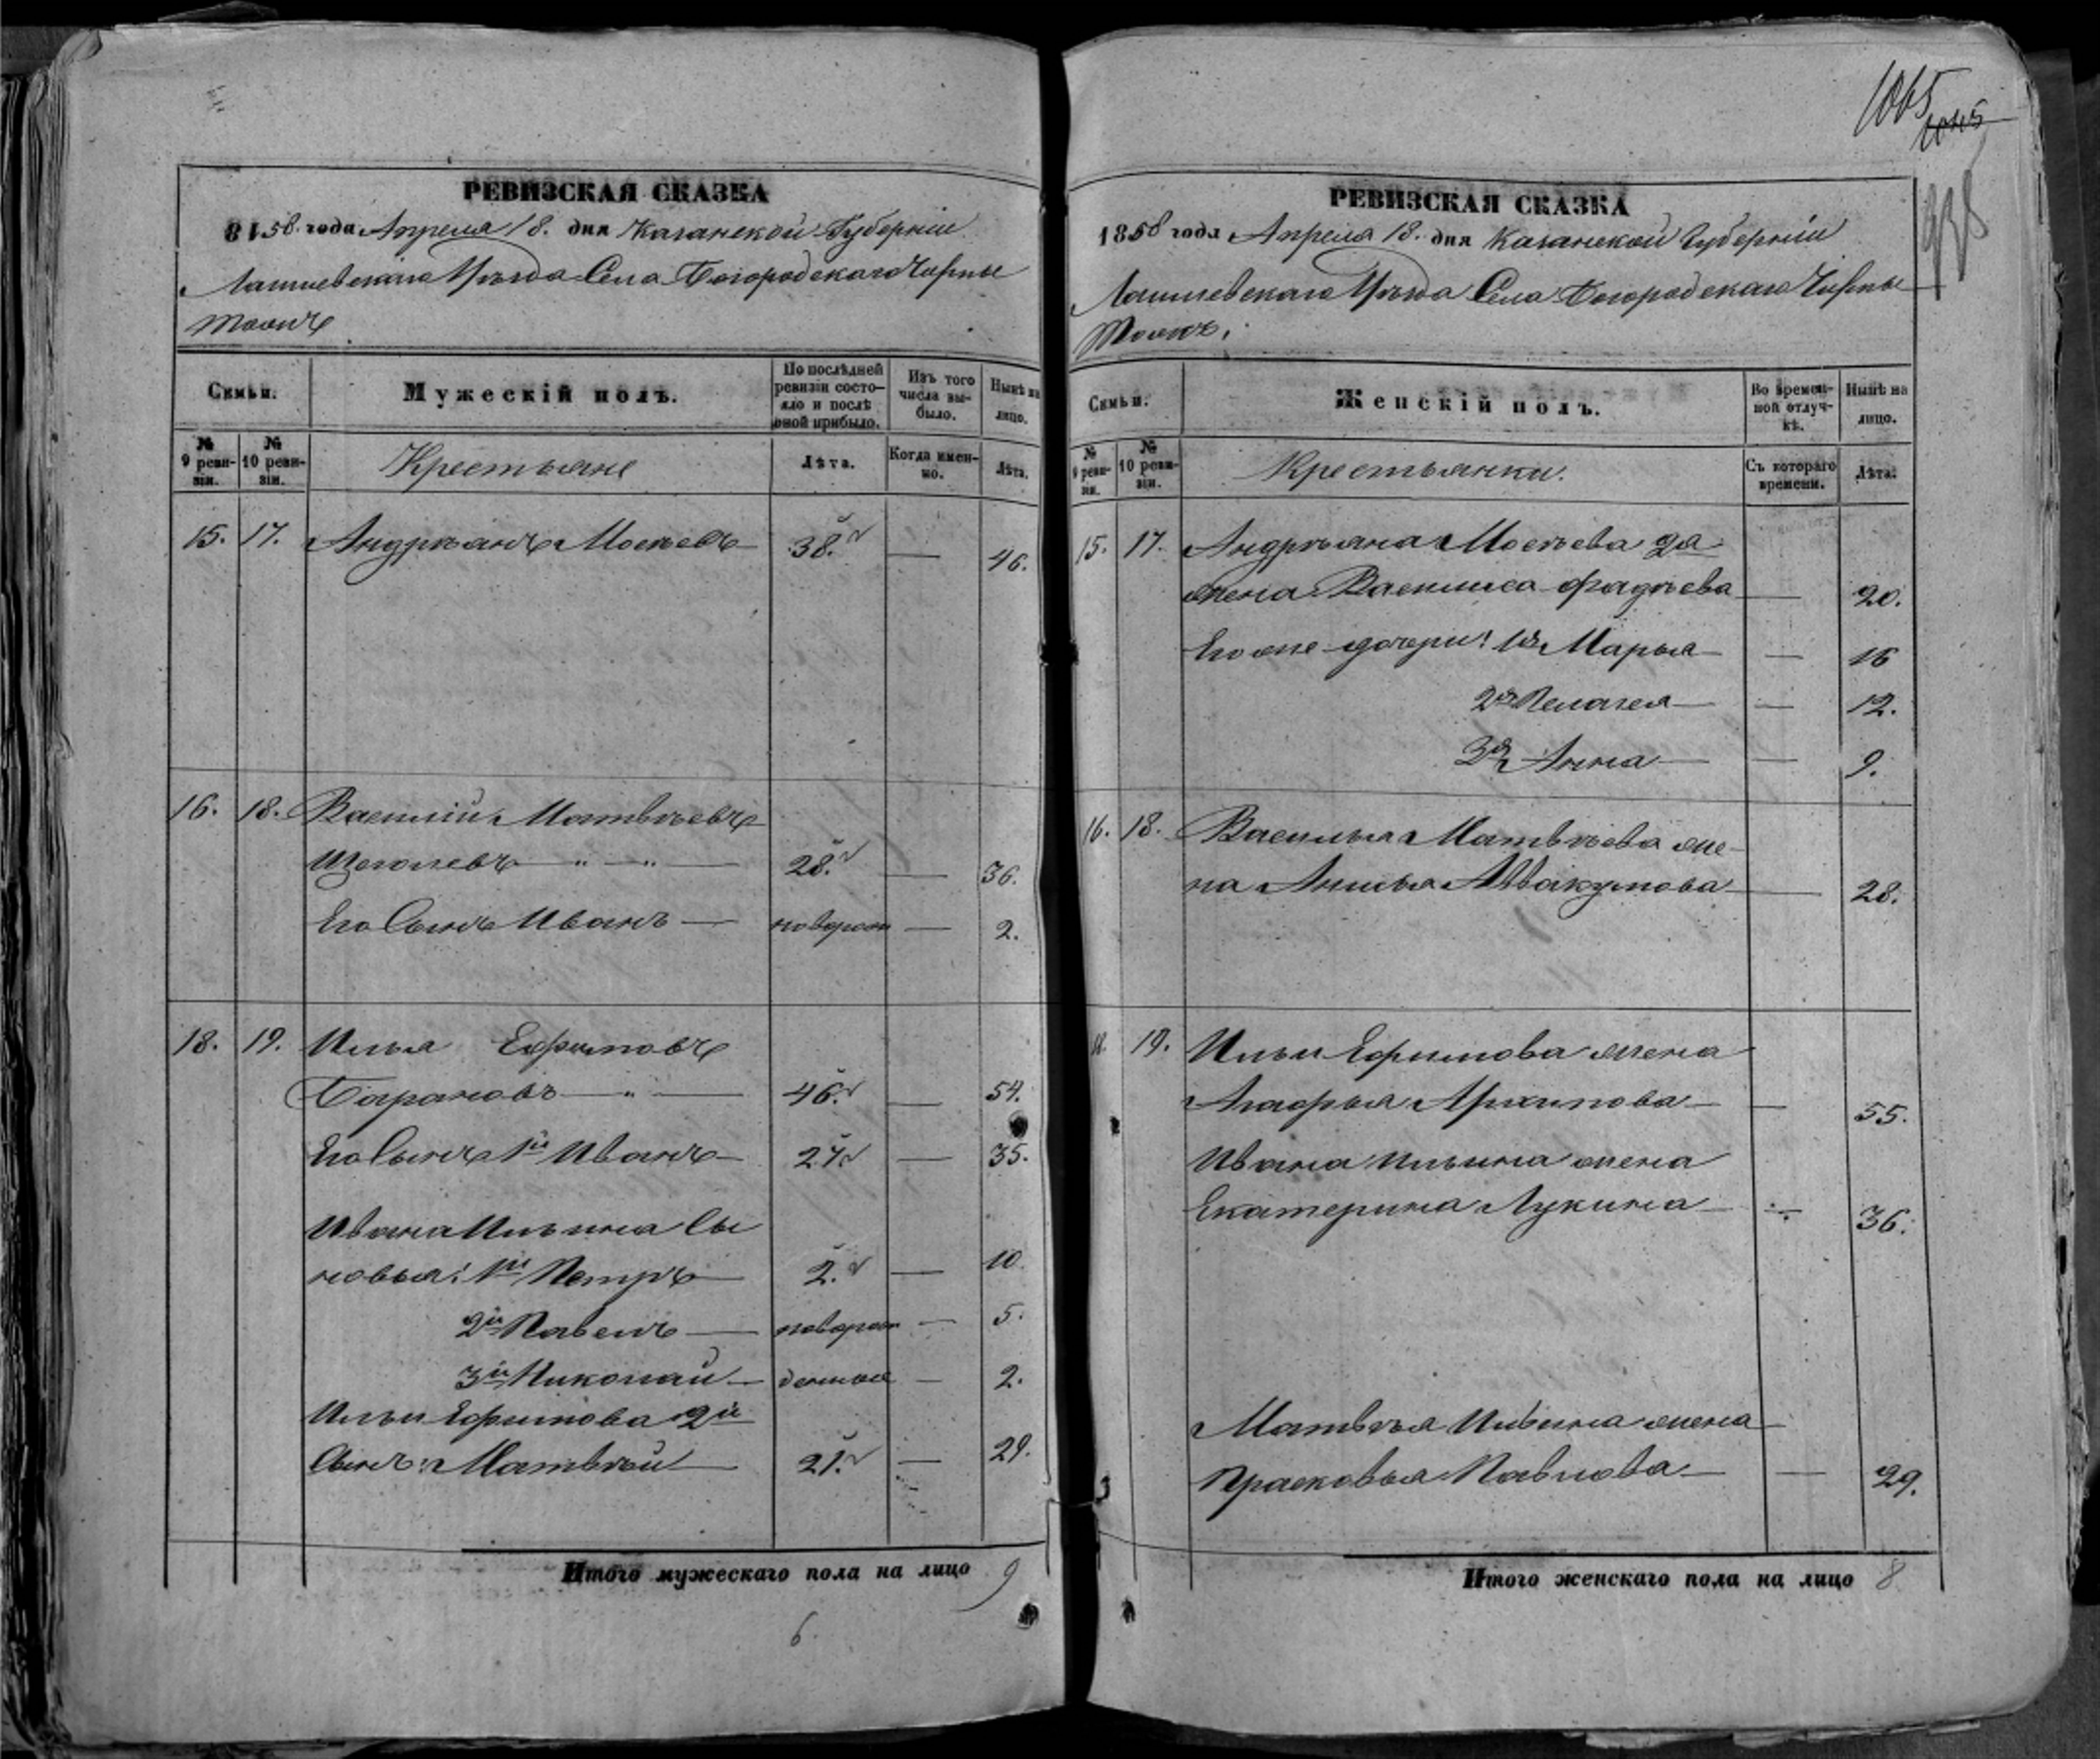 1065
1045
938
РЕВИЗСКАЯ СКАЗКА
8158 года Апреля 18. дня Казанской Губерніи
Лаишевскаго Уѣзда Села Богородскаго Чирпы
тожъ
Семьи.
Мужескій полъ.
По послѣдней ревизіи состояло и послѣ оной прибыло.
Изъ того числа выбыло.
Нынѣ на лицо.
№ 9 ревизіи.
№ 10 ревизіи.
Крестьяне
Лѣта.
Когда именно.
Лѣта.
15. 17. Андрѣянъ Мосѣевъ 38. — 46.
16. 18. Василій Матвѣевъ
Щеголевъ — " — " — 28. — 36.
Его Сынъ Иванъ — новорож — 2.
18. 19. Илья Ефимовъ
Барановъ — " — 46. — 54.
Его Сынъ 1й Иванъ — 27. — 35.
Ивана Ильина Сы
новья: 1й Петръ — 2. — 10.
2й Павелъ — новорож — 5.
3й Николай — денные — 2.
Ильи Ефимова 2й
Сынъ: Матвѣй — 21. — 29.
Итого мужескаго пола на лицо 9
6.
РЕВИЗСКАЯ СКАЗКА
1858 года Апреля 18. дня Казанской Губерніи
Лаишевскаго Уѣзда Села Богородскаго Чирпы
тожъ.
Семьи.
Женскій полъ.
Во временной отлучкѣ.
Нынѣ на лицо.
№ 9 ревизіи.
№ 10 ревизіи.
Крестьянки.
Съ котораго времени.
Лѣта.
15. 17. Андрѣяна Мосѣева 2я
жена Василиса Фадѣева — 20.
Его же дочери: 1я Марья — — 16
2я Пелагея — — 12.
3я Анна — — 9.
16. 18. Василья Матвѣева же-
на Анисья Аввакумова — 28.
18. 19. Ильи Ефимова жена
Агафья Архипова — — 55.
Ивана Ильина жена
Екатерина Лукина — — 36.
Матвѣя Ильина жена
Прасковья Павлова — — 29.
Итого женскаго пола на лицо 8